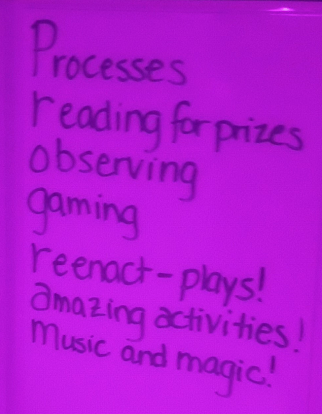 Processes
reading for prizes
observing
gaming
reenact-plays!
amazing activities!
Music and magic!